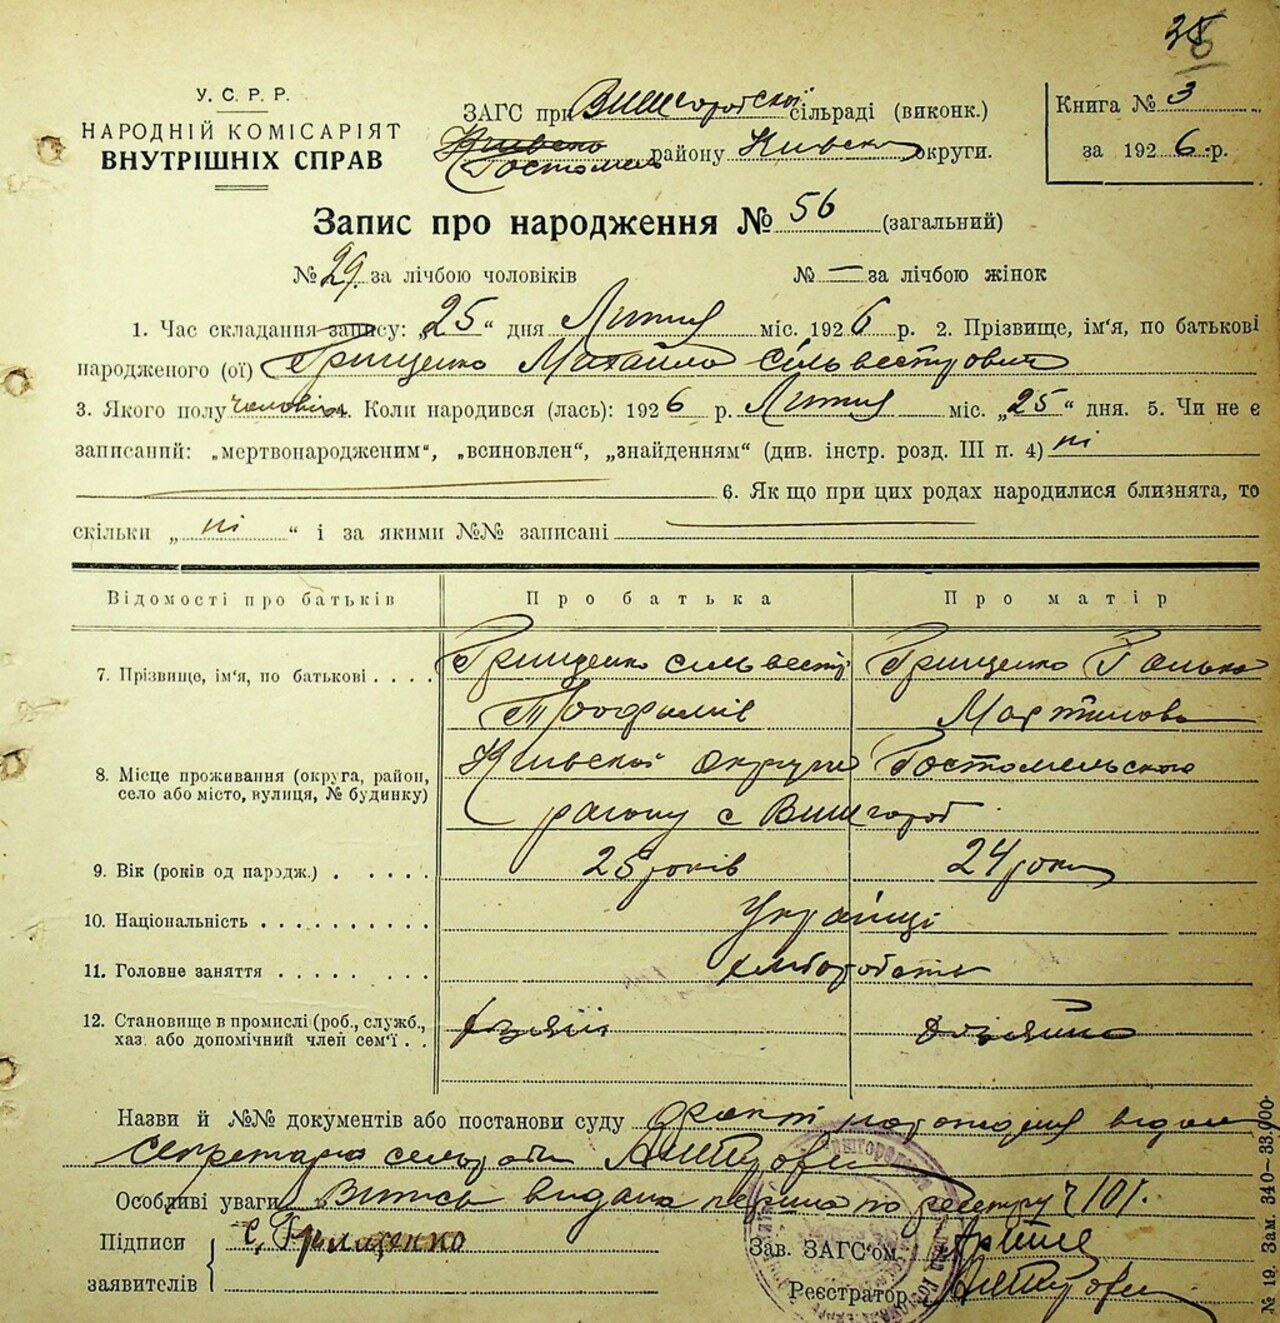 35
У. С. Р. Р.
НАРОДНІЙ КОМІСАРІЯТ
ВНУТРІШНІХ СПРАВ
ЗАГС при Вишгородскої сільраді (виконк.)
Гостомель району Київск округи.
Книга № 3
за 1926 р.
Запис про народження № 56 (загальний)
№ 29. за лічбою чоловіків № — за лічбою жінок
1. Час складання запису: „25“ дня Лютня міс. 1926 р. 2. Прізвище, ім'я, по батькові
народженого (ої) Грищенко Михайло Сільвестрович
3. Якого полу чоловіч. Коли народився (лась): 1926 р. Лютня міс. „25“ дня. 5. Чи не є
записаний: „мертвонародженим“, „всиновлен“, „знайденням“ (див. інстр. розд. III п. 4) ні
6. Як що при цих родах народилися близнята, то
скільки „ ні “ і за якими №№ записані
Відомості про батьків Про батька Про матір
7. Прізвище, ім'я, по батькові . . . . Грищенко Сильвестр Грищенко Ганька
Трофимів Мартинова
8. Місце проживання (округа, район, село або місто, вулиця, № будинку) Київскої округи Гостомельского
району с Вишгород
9. Вік (років од народж.) . . . . . 25 років 24 роки
10. Національність . . . . . . . . . . Українці
11. Головне заняття . . . . . . . . хліборобство
12. Становище в промислі (роб., служб.,
хаз. або допомічний член сем'ї . .
Назви й №№ документів або постанови суду факт народження
секретарю сельради
Особливі уваги Випись видана перша по реєстру ч 101.
Підписи
заявителів
С. Грищенко
Зав. ЗАГС'ом
Реєстратор
№ 19. Зам. 340—33.000